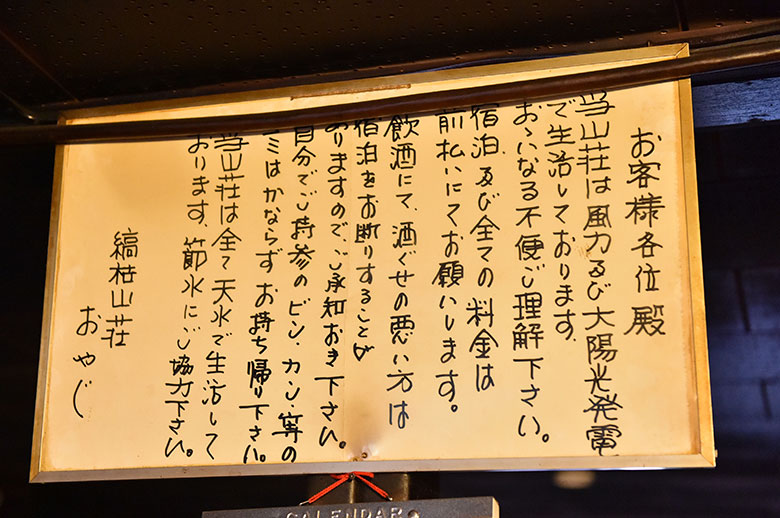 お客様各位殿
当山荘は風力及び大陽光発電
で生活しております。
おゝいなる不便ご理解下さい。
宿泊及び全ての料金は
前払いにてお願いします。
飲酒にて、酒ぐせの悪い方は
宿泊をお断りすることが
ありますので、ご承知おき下さい。
自分でご持参のビン、カン、等の
ゴミはかならずお持ち帰り下さい。
当山荘は全て天水で生活して
おります、節水にご協力下さい。
縞枯山荘
おやじ
CALENDAR